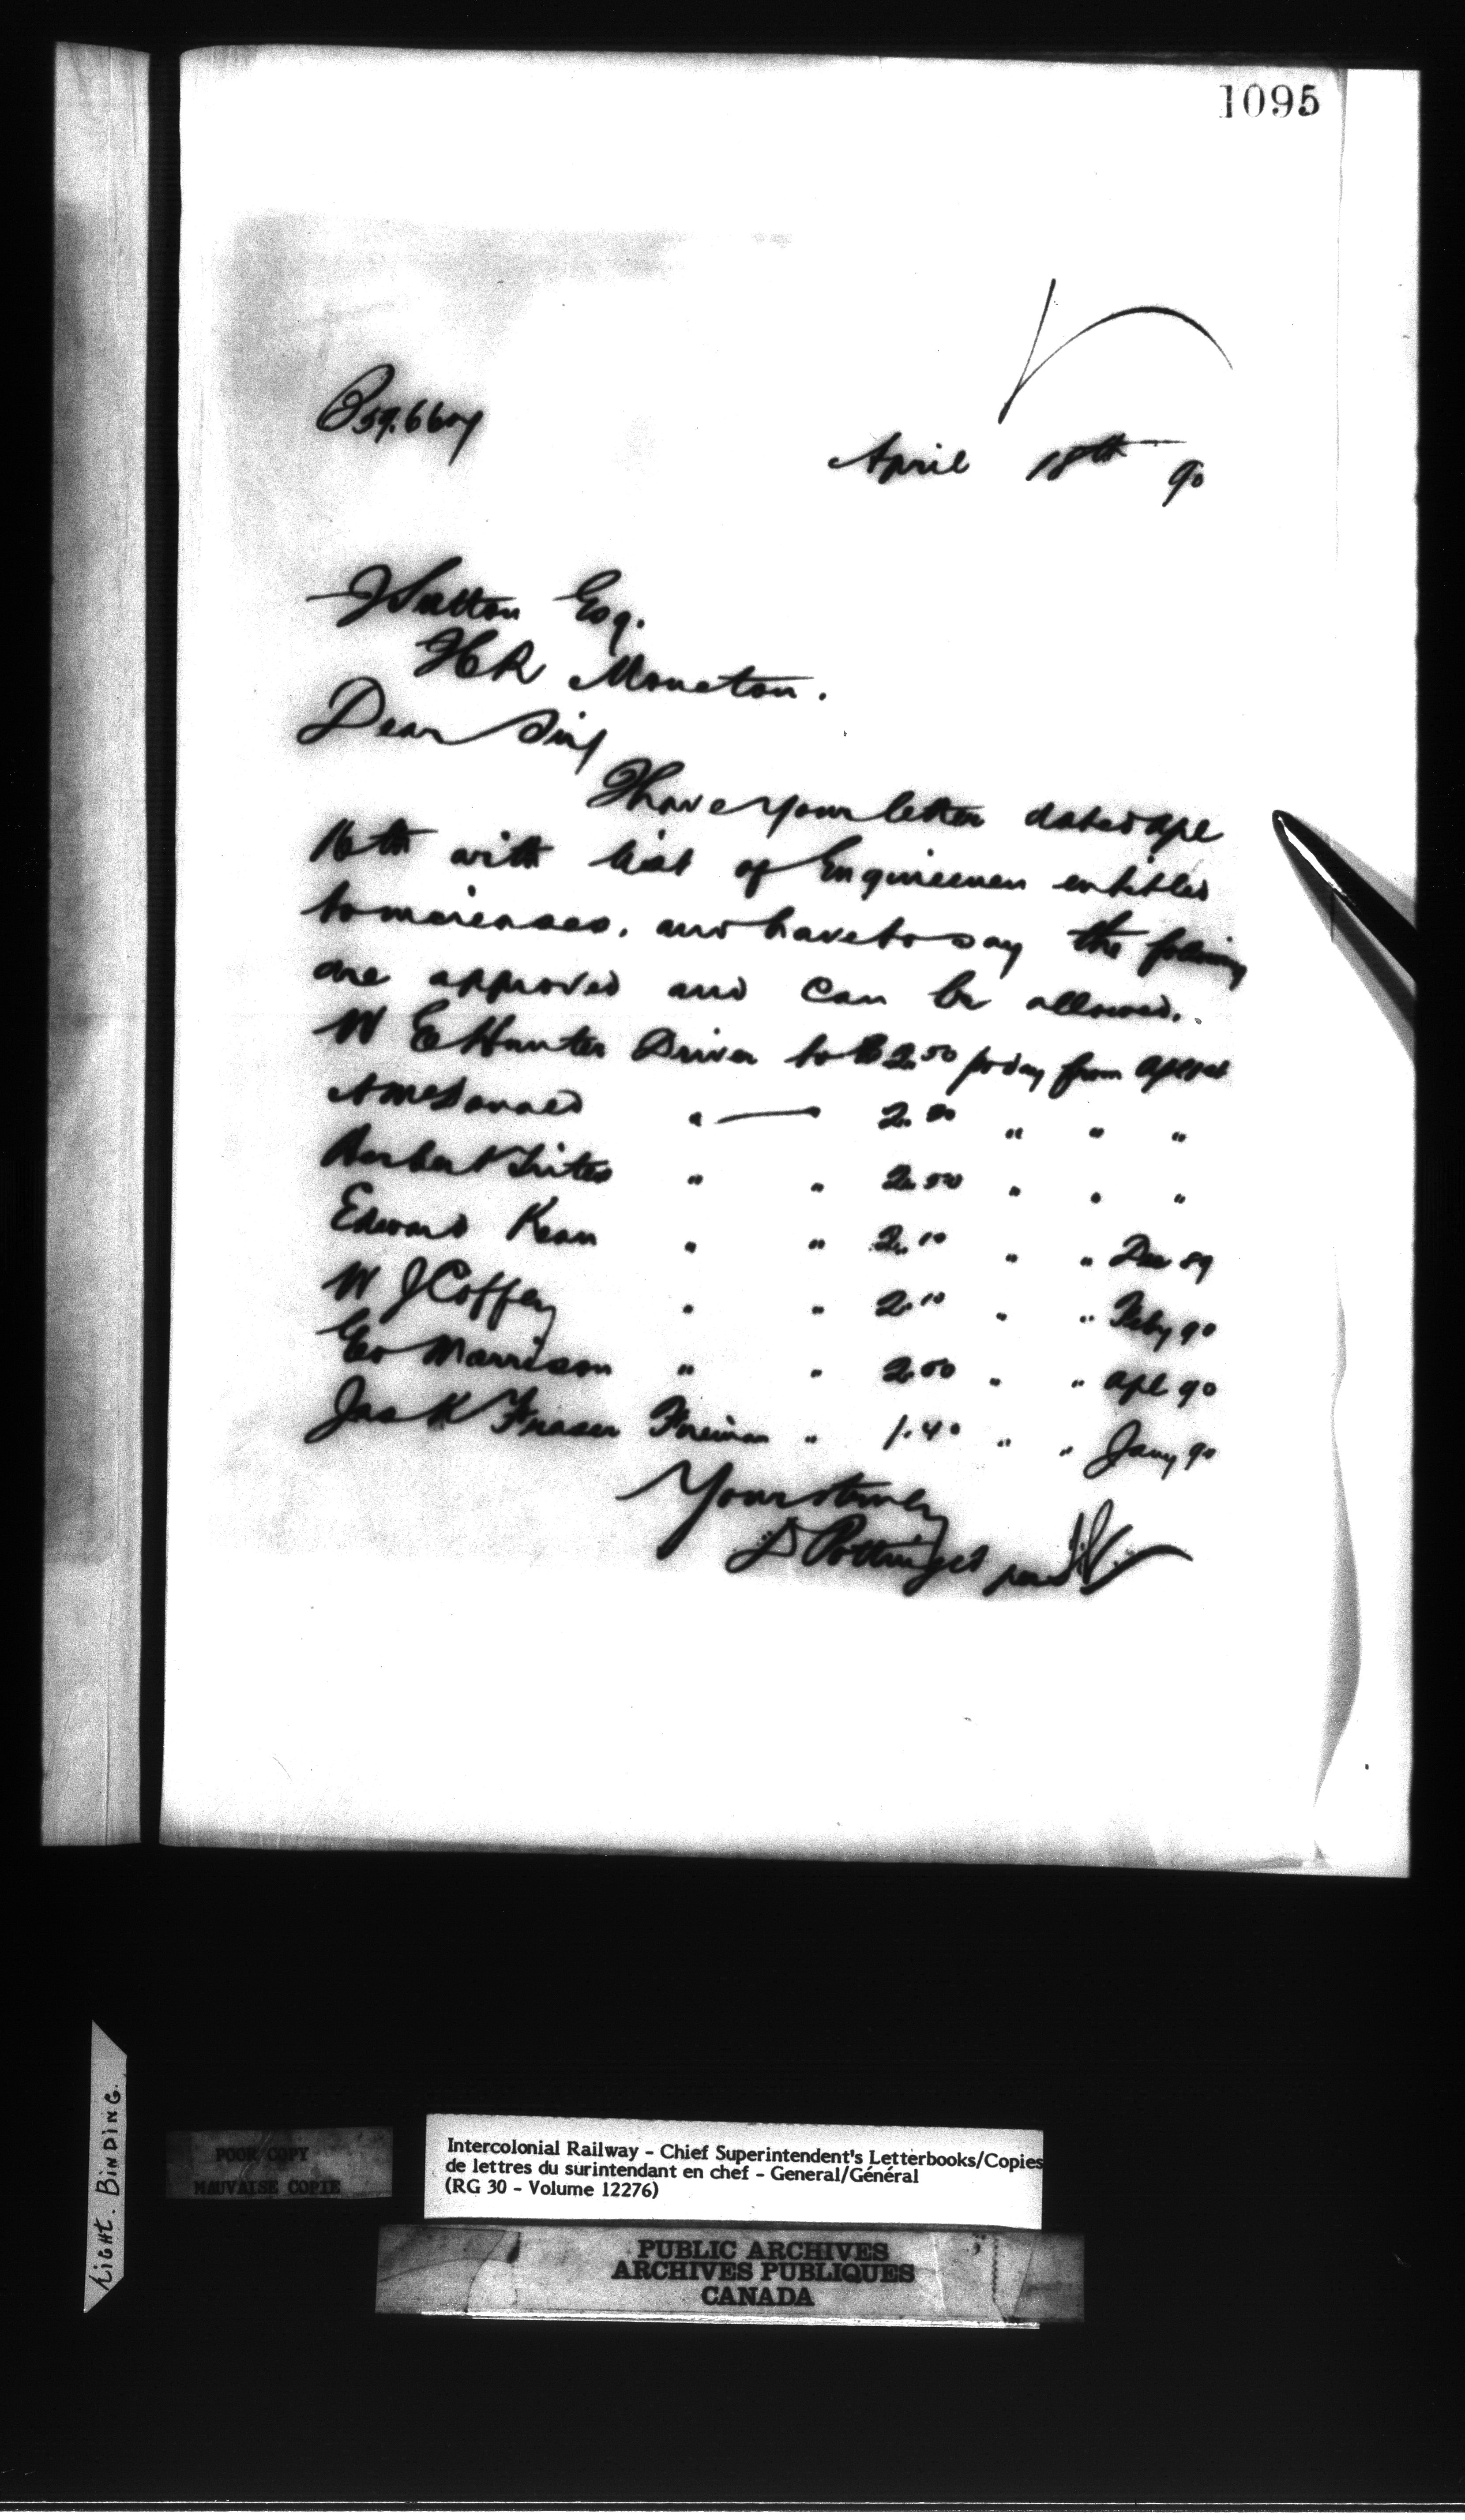 1095
April 18th 90
J Sutton Esq.
Moncton.
Dear Sir,
I have your letter dated Apl
16th with list of Enginemen entitled
to increases, and have to say the following
are approved and can be allowed.
W E Hunter Driver to $2.50 pr day from Apl 1st
A McDonald " — 2. " " "
Herbert Trites " " 2.50 " " "
Edward Kean " " 2.10 " " Dec 89
W J Coffey " " 2.10 " " Feby 90
Geo Morrison " " 2.00 " " Apl 90
Jas K Fraser Fireman " 1.40 " " Jany 90
Yours truly
D Pottinger per
LIGHT. BINDING.
POOR COPY
MAUVAISE COPIE
Intercolonial Railway - Chief Superintendent's Letterbooks/Copies
de lettres du surintendant en chef - General/Général
(RG 30 - Volume 12276)
PUBLIC ARCHIVES
ARCHIVES PUBLIQUES
CANADA